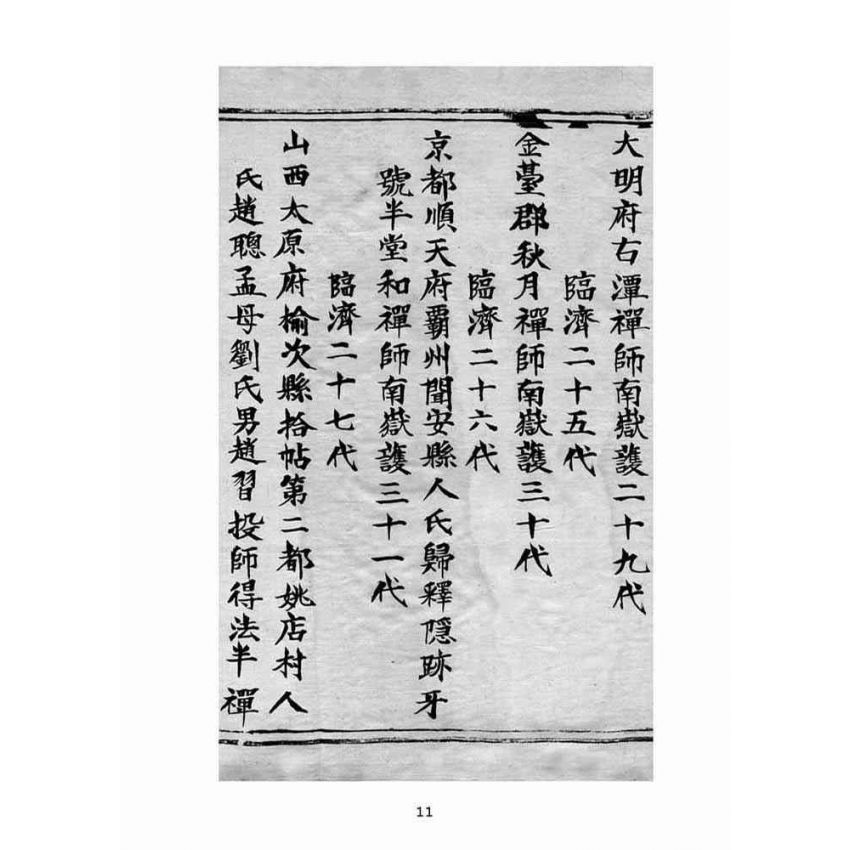 大明府右潭禪師南嶽護二十九代
臨濟二十五代
金臺郡秋月禪師南嶽護三十代
臨濟二十六代
京都順天府霸州聞安縣人氏歸釋隱跡牙
號半堂和禪師南嶽護三十一代
臨濟二十七代
山西太原府榆次縣拾帖第二都姚店村人
氏趙聰孟母劉氏男趙習投師得法半禪
11